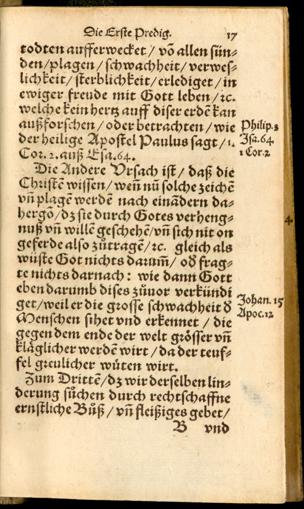 Die Erste Predig. 17
todten aufferwecket / võ allen sün-
den / plagen / schwachheit / verwes-
lichkeit / sterblichkeit / erlediget / in
ewiger freude mit Gott leben / ꝛc.
welche kein hertz auff diser erdē kan
außforschen / oder betrachten / wie
der heilige Apostel Paulus sagt / 1.
Cor. 2. auß Esa. 64.
Philip. 3
Jsa. 64.
1 Cor. 2
Die Andere Vrsach ist / daß die
Christē wissen / weñ nũ solche zeichē
vñ plagē werdē nach einãdern da-
hergõ / dz sie durch Gotes verheng-
nuß vñ willē geschehē / vñ sich nit on
geferde also zůtragē / ꝛc. gleich als
wüste Got nichts darum̃ / od̃ frag-
te nichts darnach : wie dann Gott
eben darumb dises zůuor verkündi
get / weil er die grosse schwachheit d̃
Menschen sihet vnd erkennet / die
gegen dem ende der welt grösser vñ
kläglicher werdē wirt / da der teuf-
fel greulicher wüten wirt.
Johan. 15
Apoc. 12
Zum Drittē / dz wir derselben lin-
derung sůchen durch rechtschaffne
ernstliche Bůß / vñ fleißiges gebet /
B vnd